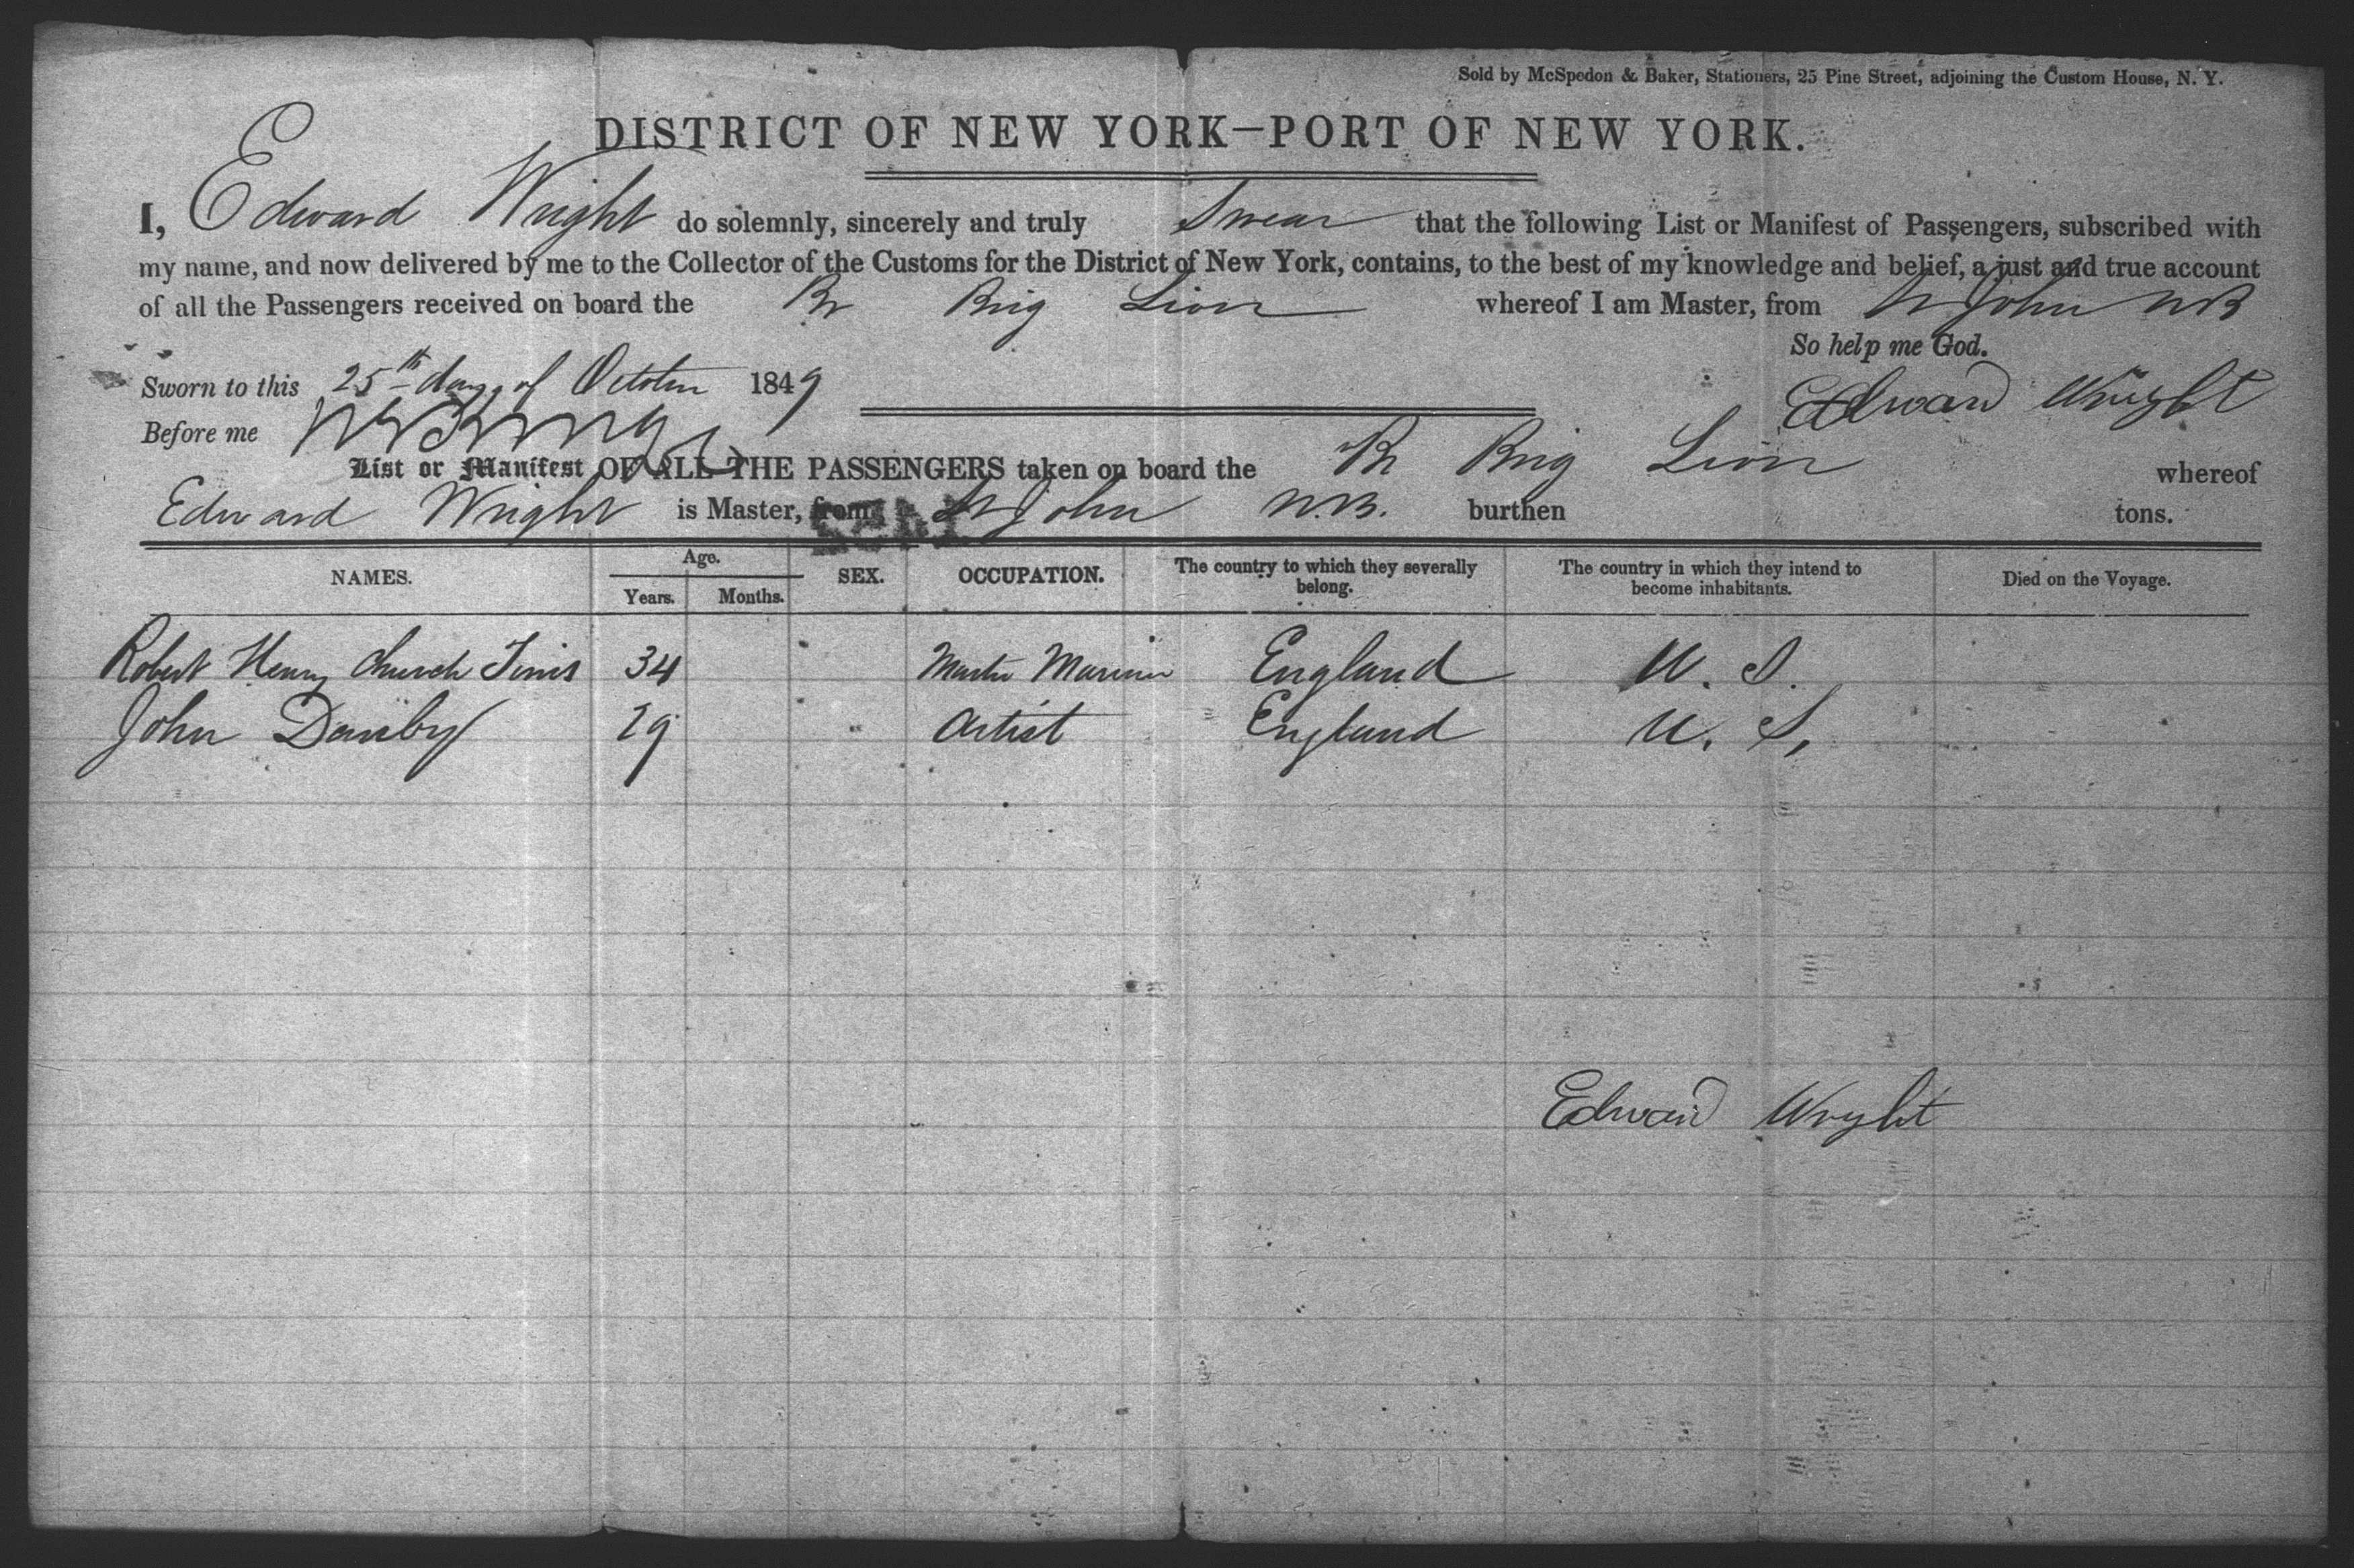 Sold by McSpedon & Baker, Stationers, 25 Pine Street, adjoining the Custom House, N. Y.
DISTRICT OF NEW YORK—PORT OF NEW YORK.
I, Edward Wright do solemnly, sincerely and truly Swear that the following List or Manifest of Passengers, subscribed with
my name, and now delivered by me to the Collector of the Customs for the District of New York, contains, to the best of my knowledge and belief, a just and true account
of all the Passengers received on board the Br Brig Lion whereof I am Master, from St John NB
So help me God.
Sworn to this 25th day of October 1849
Edward Wright
Before me
List or Manifest OF ALL THE PASSENGERS taken on board the Br Brig Lion whereof
Edward Wright is Master, from St John N.B. burthen tons.
NAMES. Age. Years. Months. SEX. OCCUPATION. The country to which they severally belong. The country in which they intend to become inhabitants. Died on the Voyage.
Robert Henry Church 34 Master Mariner England U. S.
John Danby 29 " Artist England U. S.
Edward Wright